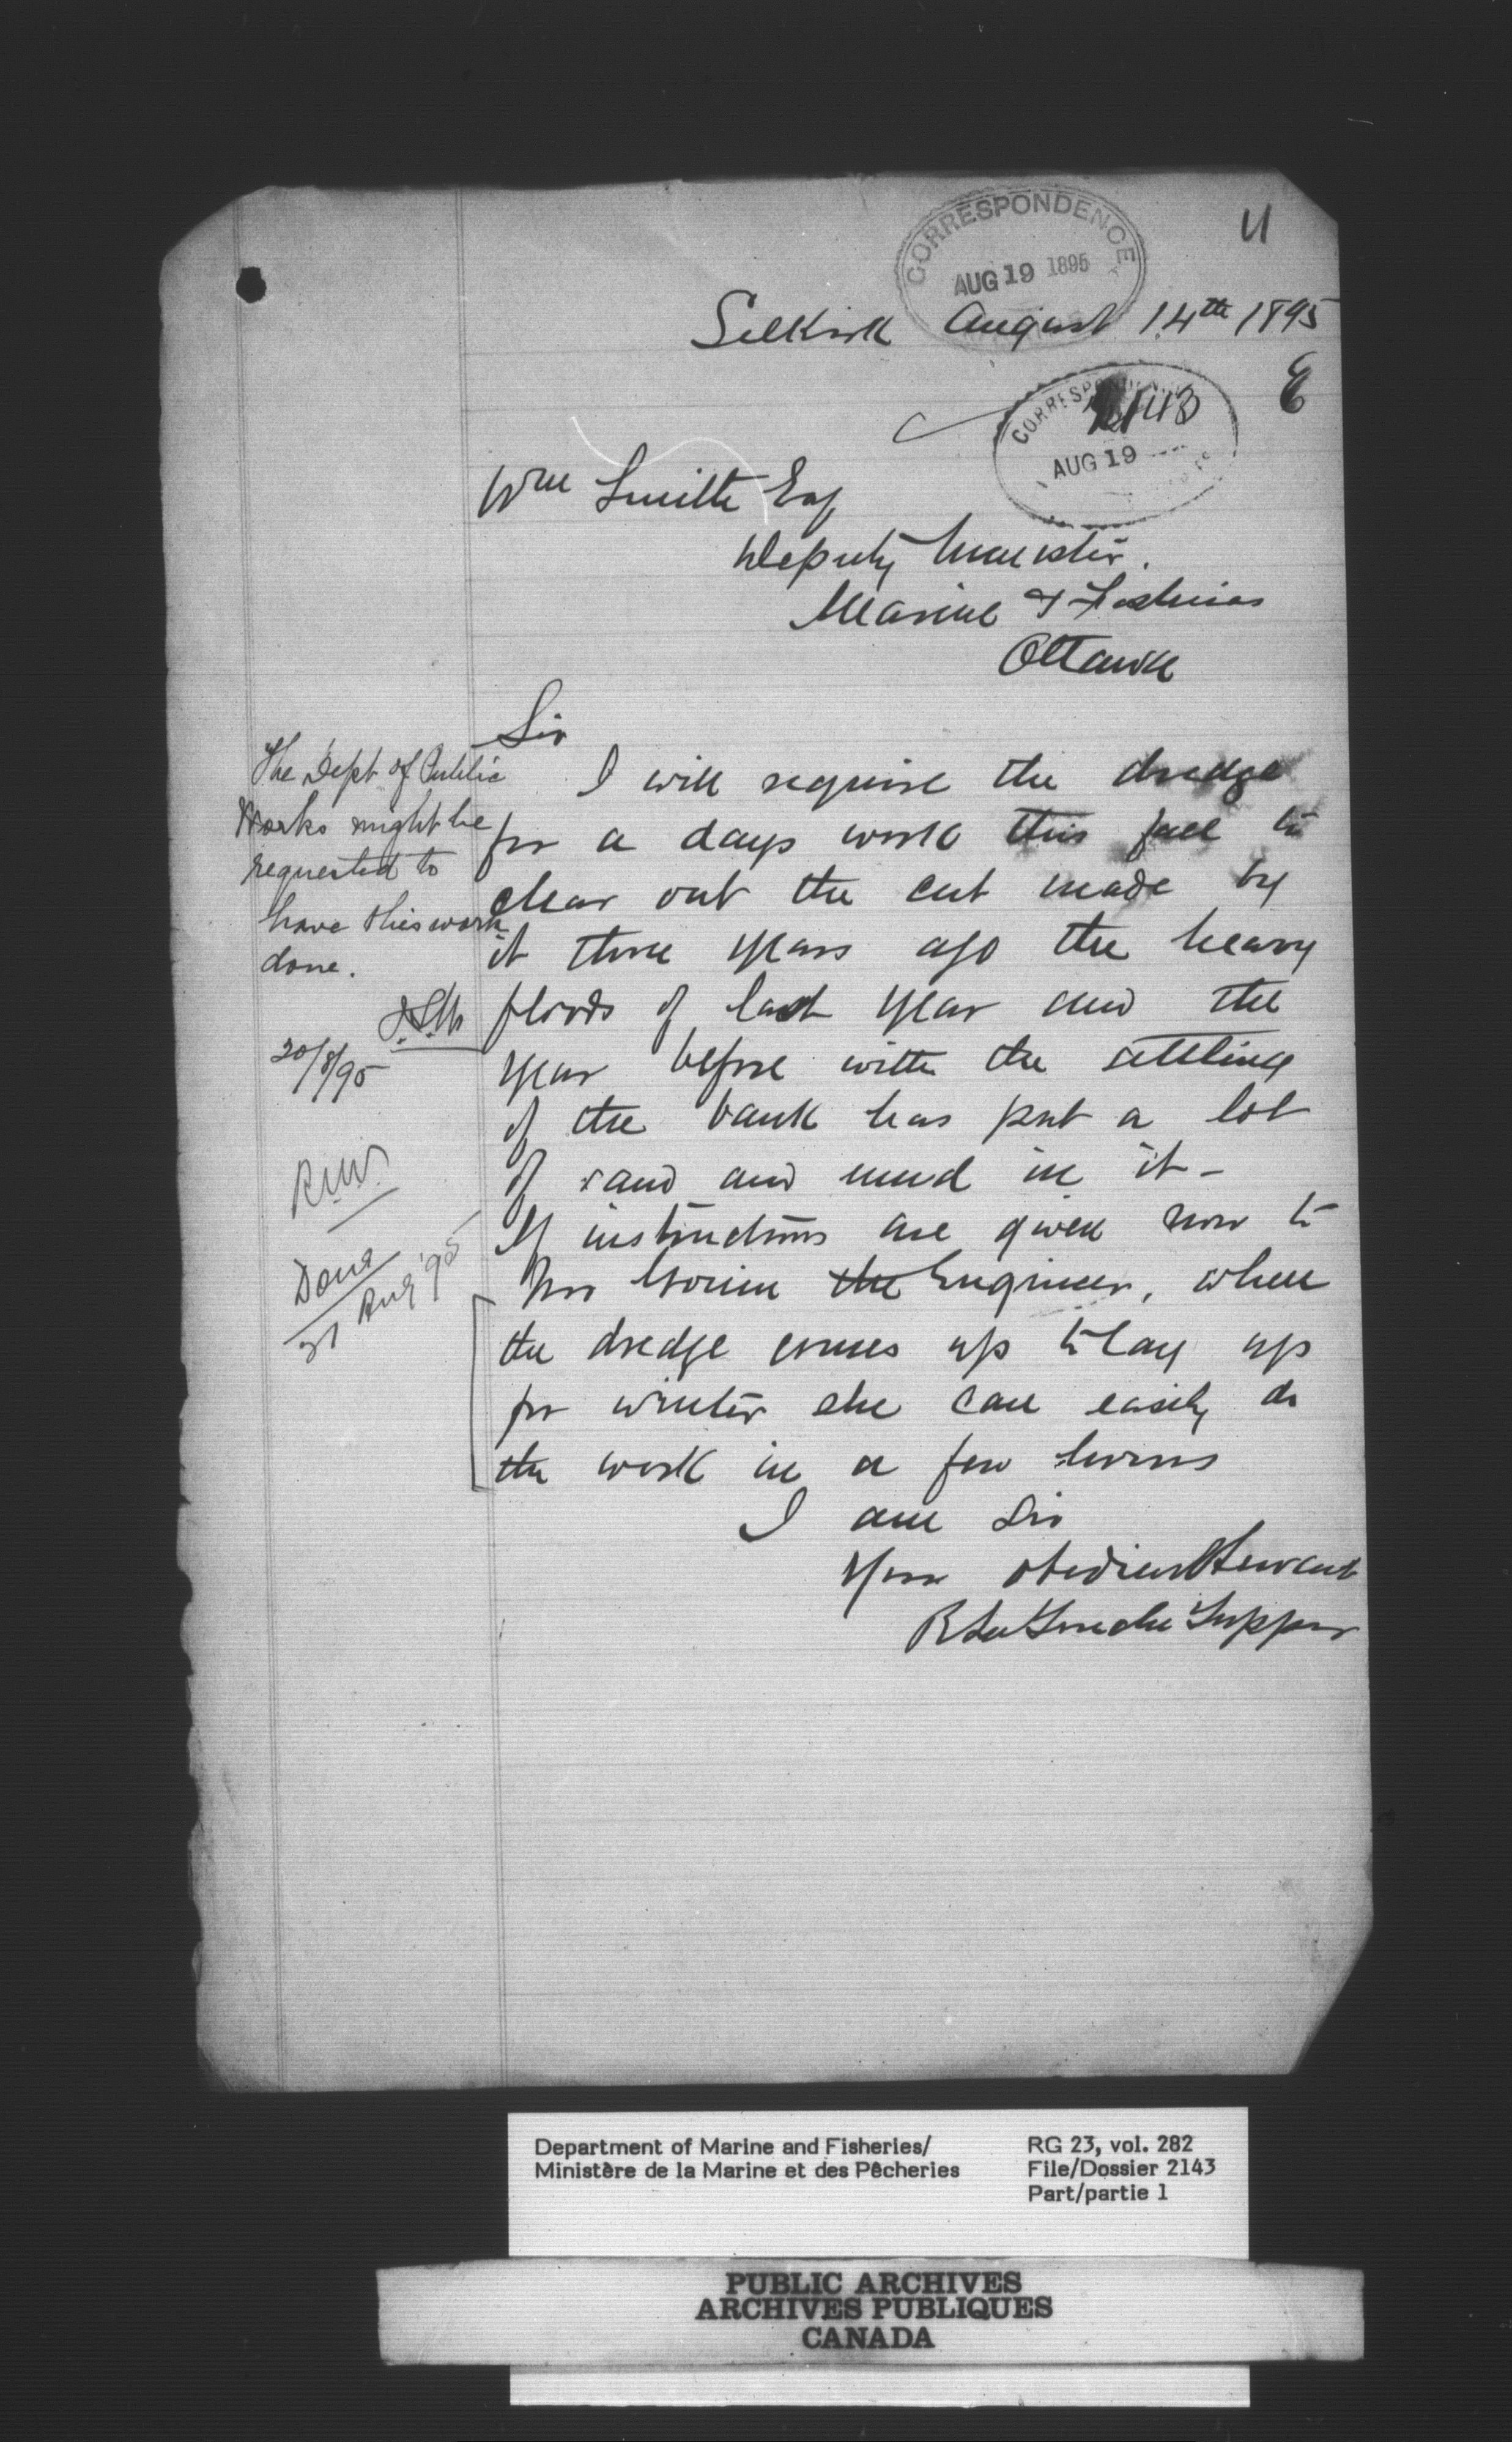 CORRESPONDENCE
AUG 19 1895
Selkirk August 14th 1895
E
CORRESPONDENCE
AUG 19
Wm Smith Esq
Deputy Minister.
Marine & Fisheries
Ottawa
Sir
I will require the dredge
for a days work this fall to
clear out the cut made by
it three years ago the heavy
floods of last year and the
year before with the settling
of the bank has put a lot
of sand and mud in it -
If instructions are given now to
Mr the Engineer, when
the dredge comes up to lay up
for winter she can easily do
the work in a few hours
I am Sir
Your obedient Servant
R Tupper
The Dept of Public
Works might be
requested to
have this work
done.
20/8/95
Done
21 Aug '95
Department of Marine and Fisheries/
Ministère de la Marine et des Pêcheries
RG 23, vol. 282
File/Dossier 2143
Part/partie 1
PUBLIC ARCHIVES
ARCHIVES PUBLIQUES
CANADA